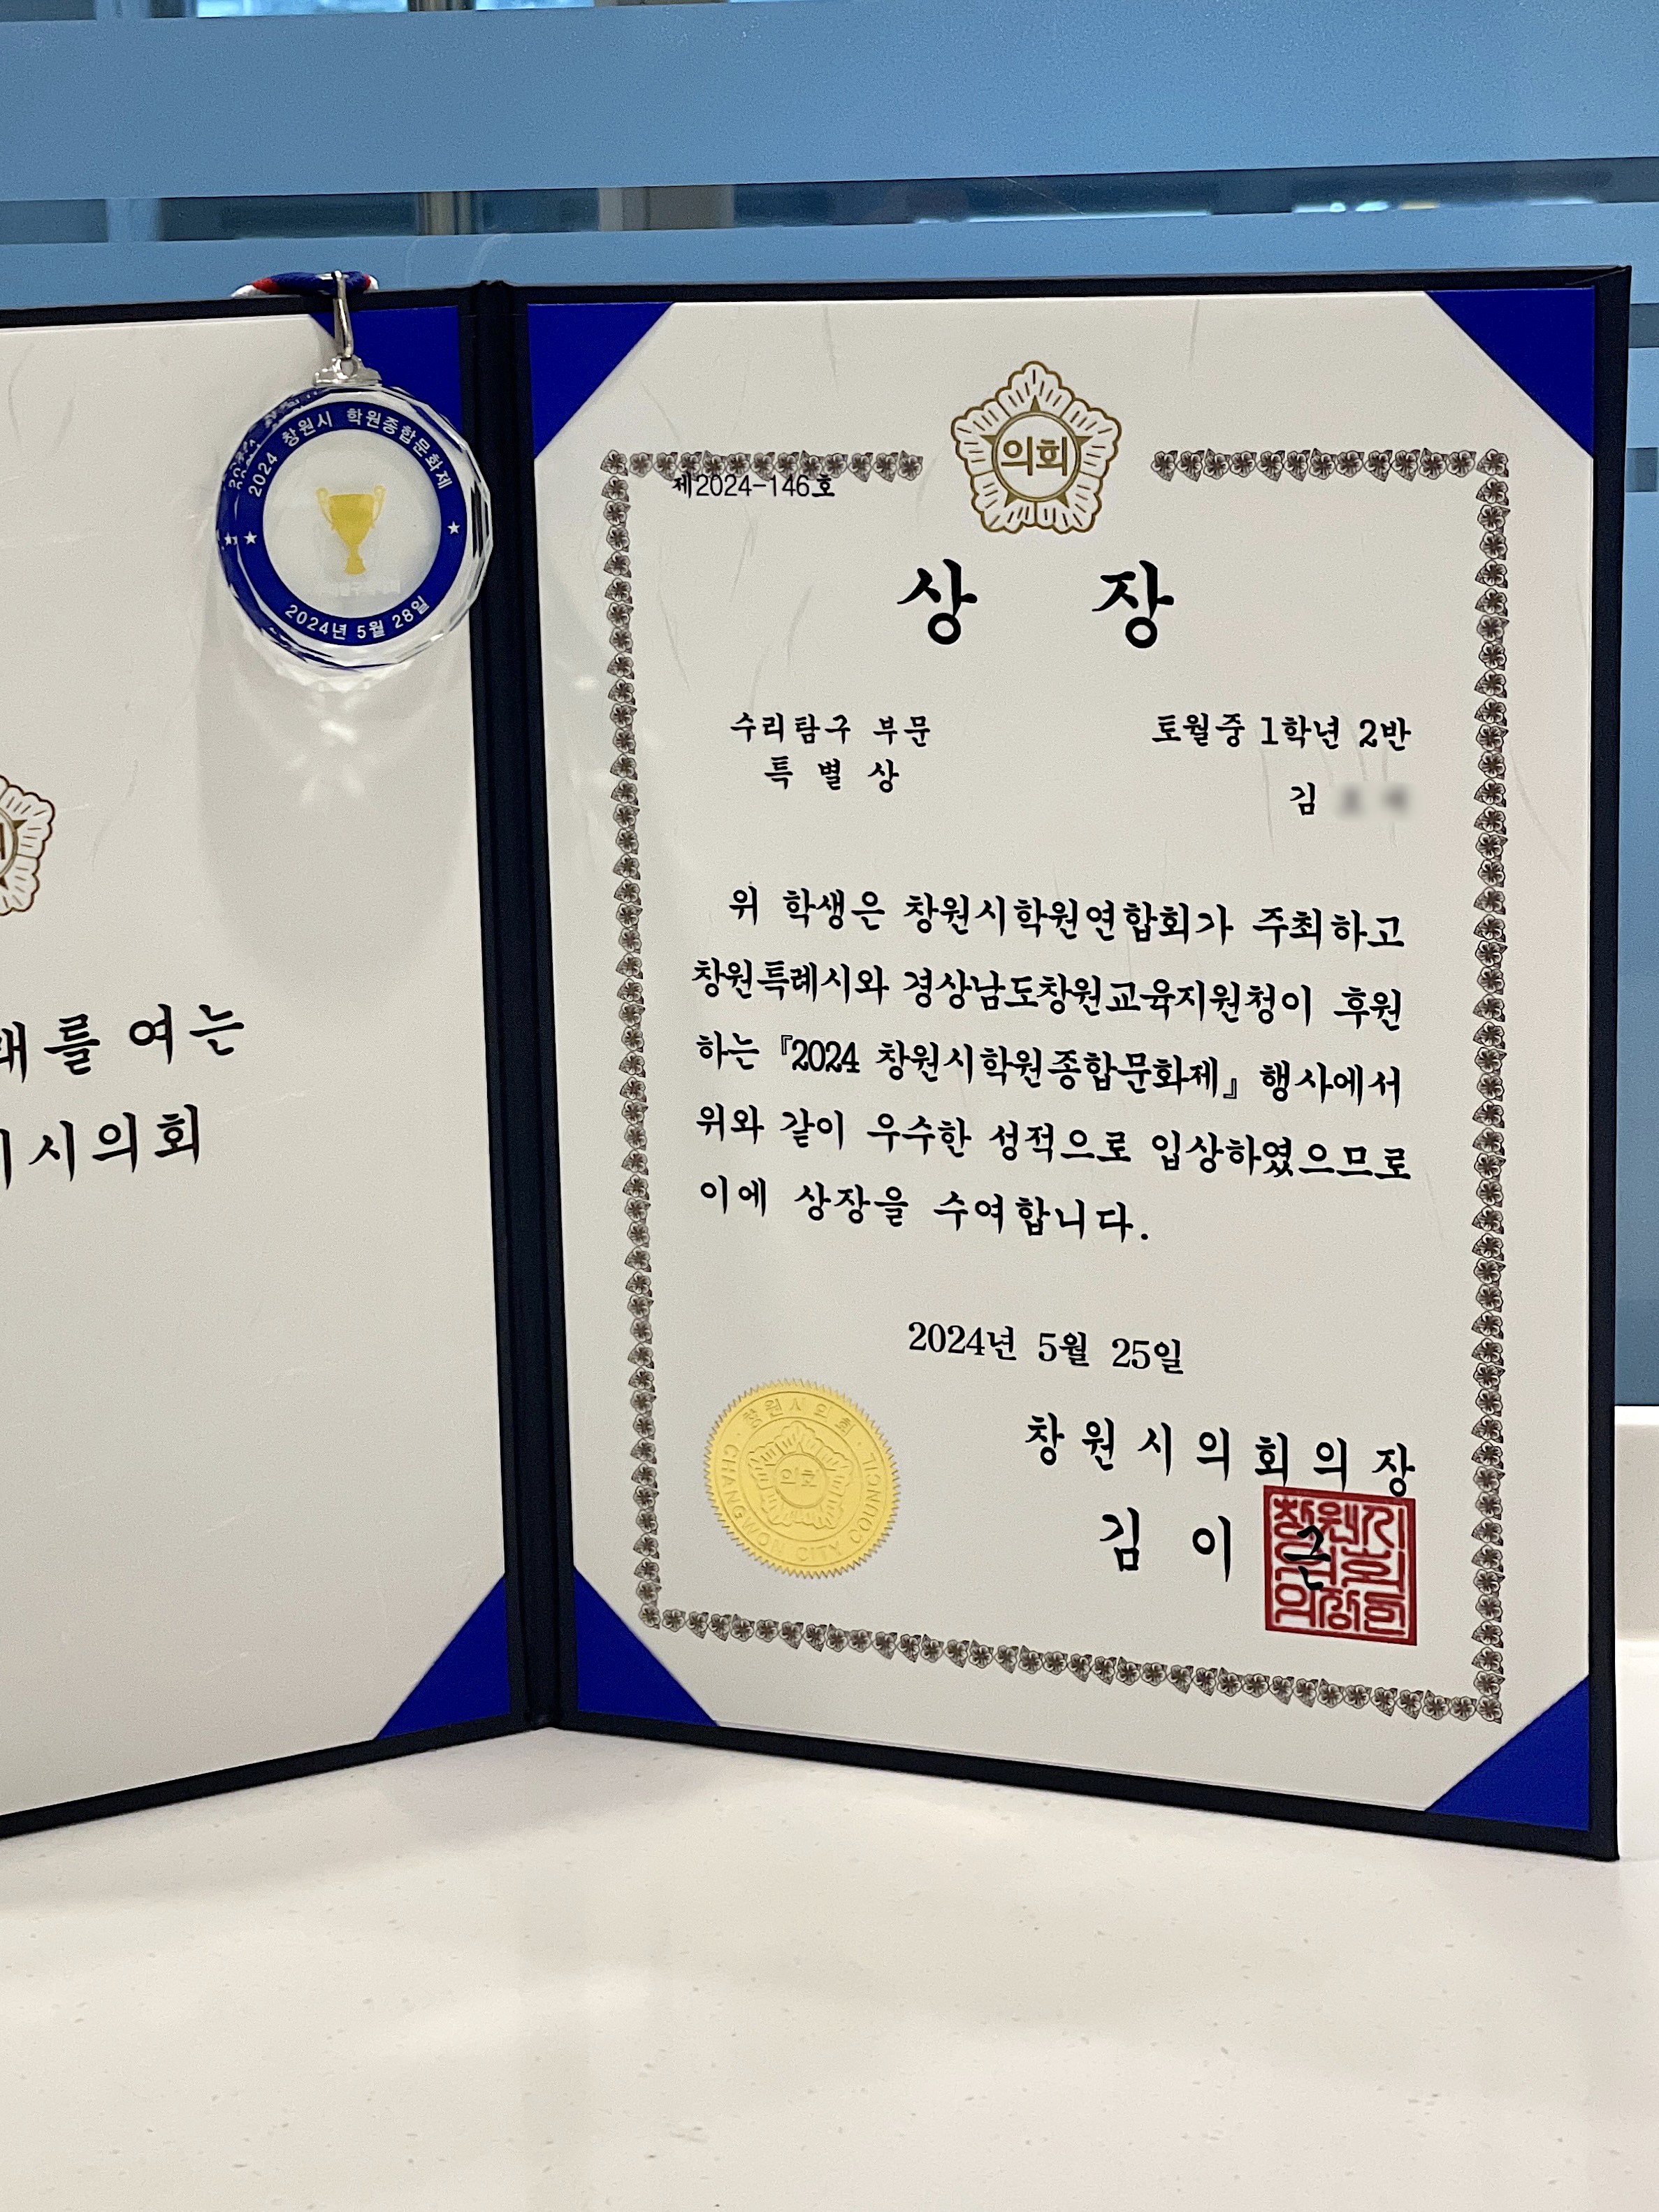 2024 창원시 학원종합문화제
2024년 5월 28일
를 여는
시의회
의회
제2024-146호
상 장
수리탐구 부문
특 별 상
토월중 1학년 2반
김
위 학생은 창원시학원연합회가 주최하고
창원특례시와 경상남도창원교육지원청이 후원
하는 『2024 창원시학원종합문화제』 행사에서
위와 같이 우수한 성적으로 입상하였으므로
이에 상장을 수여합니다.
2024년 5월 25일
창원시의회
의회
CHANGWON CITY COUNCIL
창 원 시 의 회 의 장
김 이 근
창원시
의회
의장인